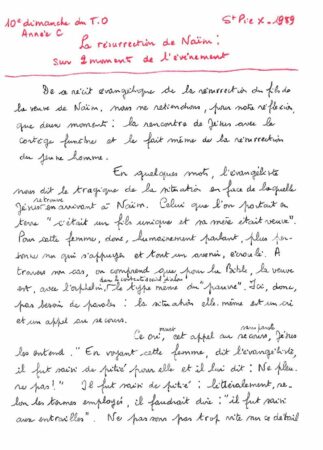 10e dimanche du T.O
Année C
St Pie X - 1989
La résurrection de Naïm :
sur 2 moments de l'événement
De ce récit évangélique de la résurrection du fils de
la veuve de Naïm, nous ne retiendrons, pour notre réflexion,
que deux moments : la rencontre de Jésus avec le
cortège funèbre et le fait même de la résurrection
du jeune homme.
En quelques mots, l'évangéliste
nous dit le tragique de la situation en face de laquelle
se trouve
Jésus en arrivant à Naïm. Celui que l'on portait en
terre "c'était un fils unique et sa mère était veuve".
Pour cette femme, donc, humainement parlant, plus per-
sonne sur qui s'appuyer et tout un avenir, écroulé. A
travers son cas, on comprend que pour la Bible, la veuve
dans le contexte social d'alors
est, avec l'orphelin, le type même du "pauvre". Ici, donc,
pas besoin de paroles : la situation elle-même est un cri
et un appel au secours.
muet
sans parole
Ce cri, cet appel au secours, Jésus
les entend. "En voyant cette femme, dit l'évangéliste,
il fut saisi de pitié pour elle et il lui dit : Ne pleu-
re pas !" Il fut saisi de pitié : littéralement, se-
lon les termes employés, il faudrait dire : "il fut saisi
aux entrailles". Ne passons pas trop vite sur ce détail